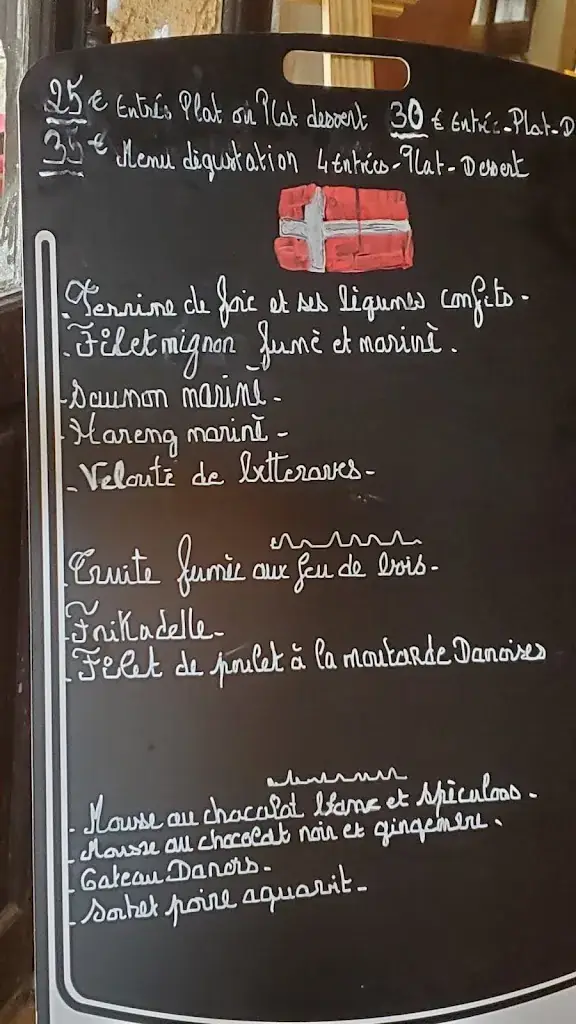 25 € Entrés Plat ou Plat dessert 30 € Entrée-Plat-D
35 € Menu dégustation 4 Entrées-Plat-Dessert
- Terrine de foie et ses légumes confits -
- Filet mignon fumé et mariné.
- Saumon mariné -
- Hareng mariné -
- Velouté de betteraves -
- Truite fumée aux feu de bois -
- Frikadelle -
- Filet de poulet à la moutarde Danoises
- Mousse au chocolat blanc et spéculoos -
- Mousse au chocolat noir et gingembre.
- Gateau Danois -
- Sorbet poire aquavit -